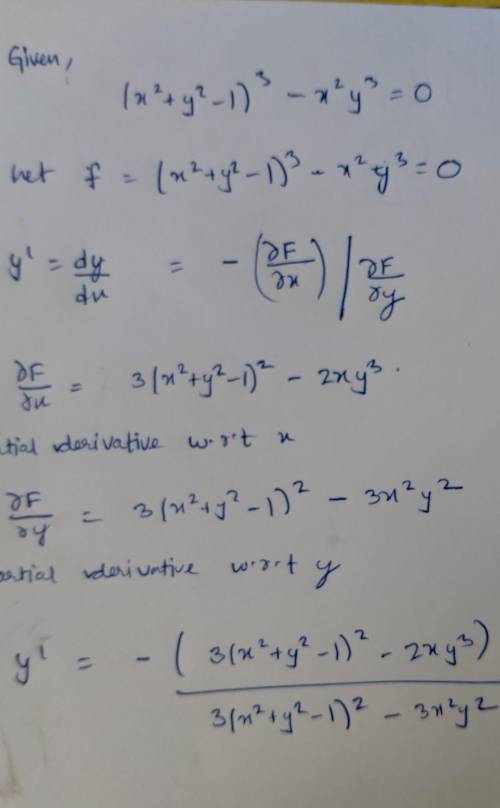 Given,
(x²+y²-1)³ - x²y³ = 0
Let f = (x²+y²-1)³ - x²y³ = 0
y' = dy/dx = - (∂F/∂x) / ∂F/∂y
∂F/∂x = 3(x²+y²-1)² - 2xy³.
tial derivative w.r.t x
∂F/∂y = 3(x²+y²-1)² - 3x²y²
artial derivative w.r.t y
y' = - (3(x²+y²-1)² - 2xy³) / 3(x²+y²-1)² - 3x²y²